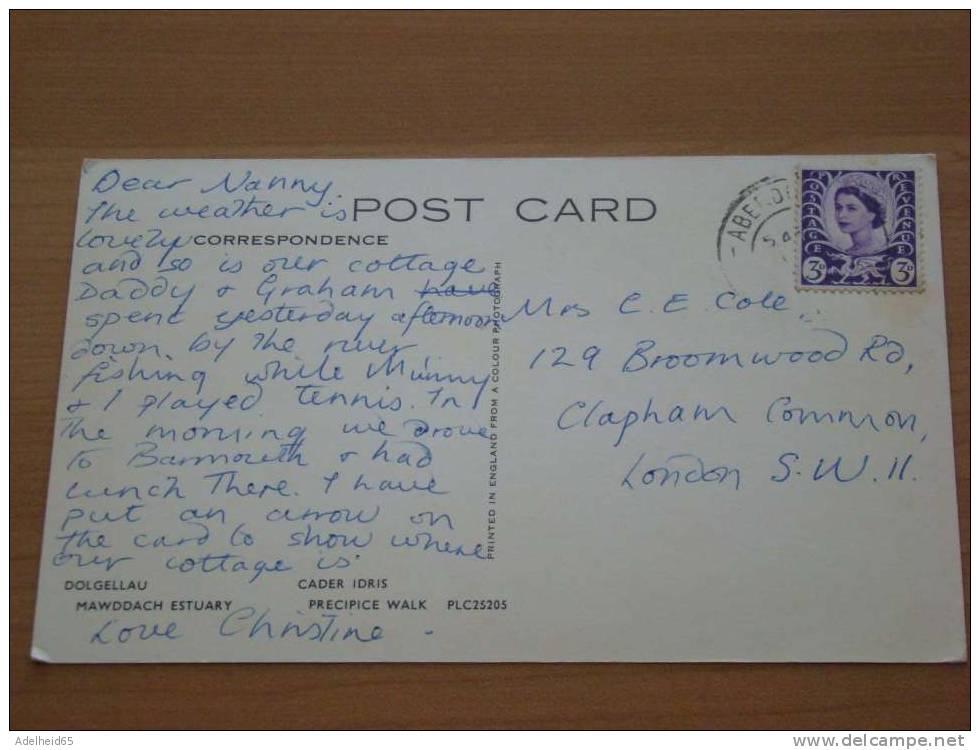 Dear Nanny.
The weather is
POST CARD
lovely
CORRESPONDENCE
and so is our cottage
Daddy & Graham have
spent yesterday afternoon
down by the river
fishing while Mummy
& I played tennis. In
the morning we drove
to Barmouth & had
lunch there. I have
put an arrow on
the card to show where
our cottage is.
DOLGELLAU CADER IDRIS
MAWDDACH ESTUARY PRECIPICE WALK PLC25205
Love Christine
PRINTED IN ENGLAND FROM A COLOUR PHOTOGRAPH
Mrs C. E. Cole,
129 Broomwood Rd,
Clapham Common,
London S.W.11.
POSTAGE REVENUE
3D 3D
Adelheid65
www.delcampe.net